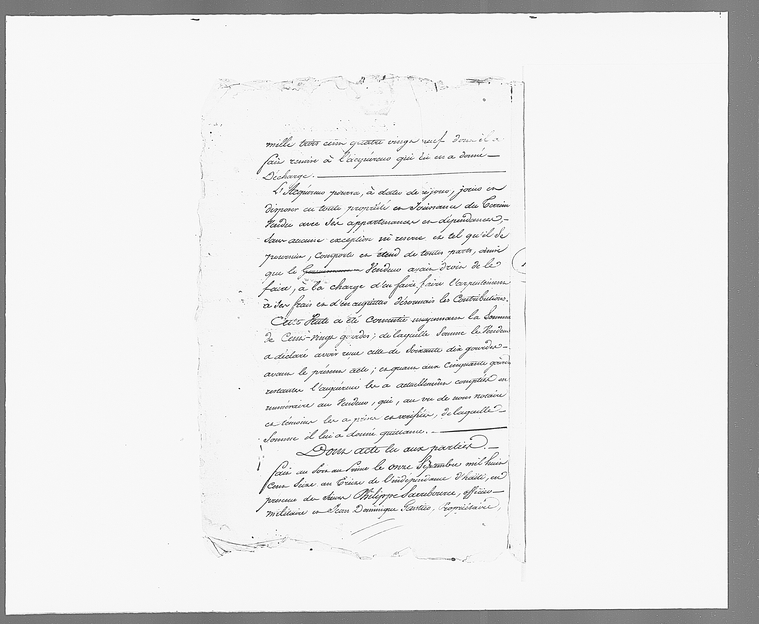 mille trois cent quatre vingt neuf dont il a
fait remise à l'acquéreur qui lui en a donné —
Décharge. —
L'Acquéreur pourra, à dater de ce jour, jouir et
disposer en toute propriété et Jouissance du Terrein
Vendu avec ses appartenances et dépendances, —
Sans aucune exception ni reserve et tel qu'il se
poursuit, Comporte et étend de toutes parts, ainsi
que le Vendeur avait droit de le
faire, à la charge d'en faire faire l'arpentement
à ses frais et d'en acquitter désormais les Contributions.
Cette Vente a été Consentie moyennant la Somme
de Cent-vingt gourdes; de laquelle Somme le Vendeur
a déclaré avoir reçu celle de Soixante dix gourdes —
avant le présent acte; et quant aux Cinquante gourdes
restantes l'acquéreur les a actuellement comptées en
numéraire au Vendeur, qui, au vu de nous notaire
et témoins les a prises et vérifiées, de laquelle —
Somme il lui a donné quittance. —
Dont acte lu aux parties. —
Fait au Port au Prince le onze mil huit
Cent Seize an Treize de l'indépendance d'haïti, en
présence des Sieurs Philippe officier —
militaire et Jean Dominique Propriétaire,